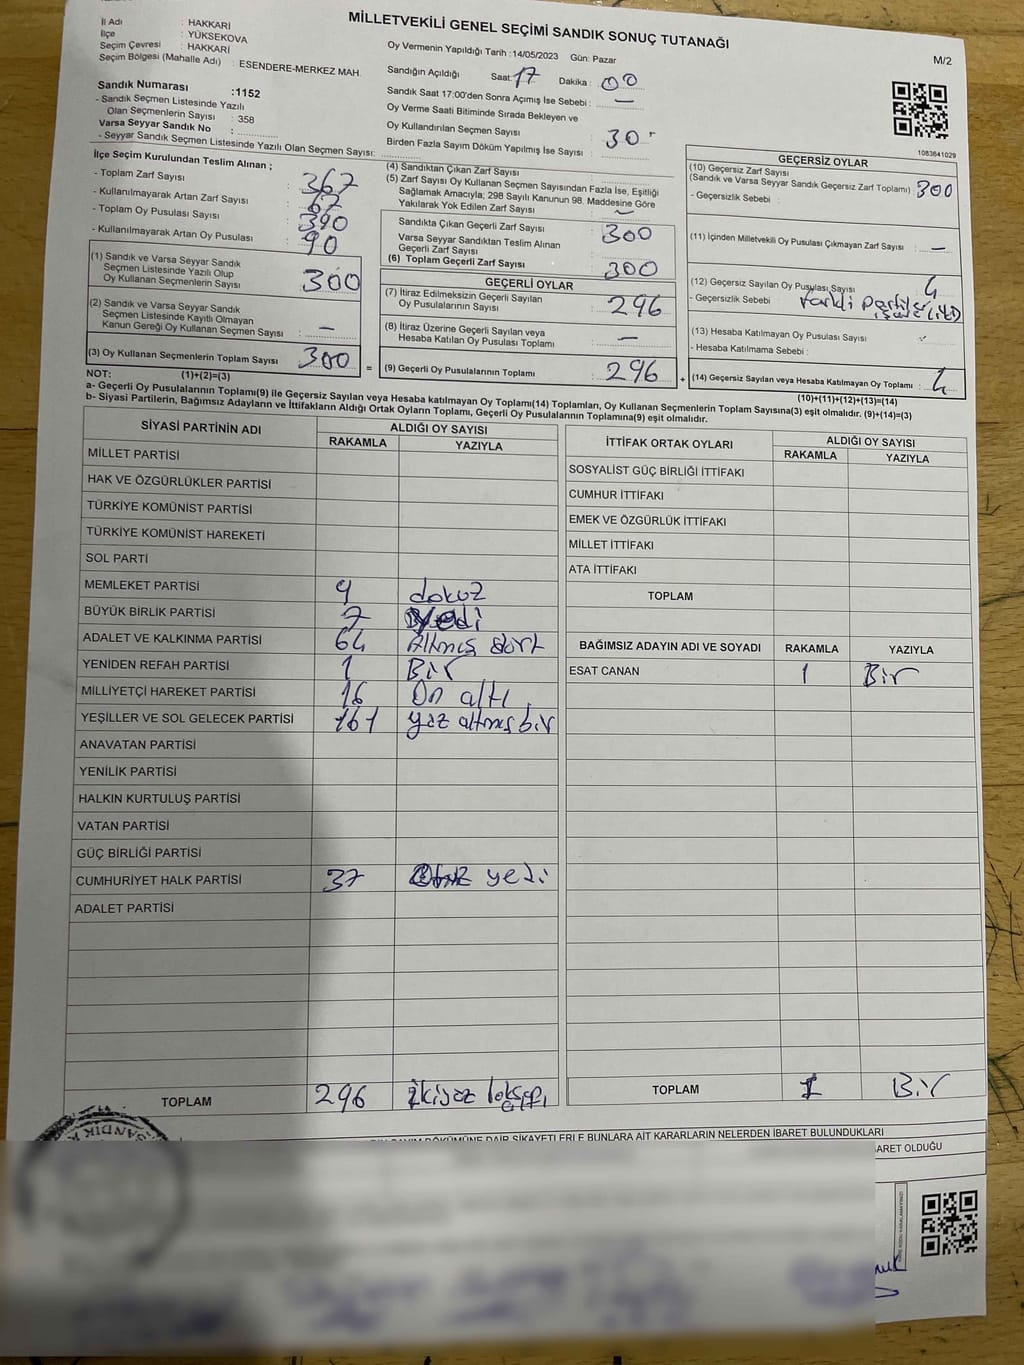 MİLLETVEKİLİ GENEL SEÇİMİ SANDIK SONUÇ TUTANAĞI
M/2
İl Adı : HAKKARİ
İlçe : YÜKSEKOVA
Seçim Çevresi : HAKKARİ
Seçim Bölgesi (Mahalle Adı) : ESENDERE-MERKEZ MAH.
Sandık Numarası :1152
- Sandık Seçmen Listesinde Yazılı
Olan Seçmenlerin Sayısı : 358
Varsa Seyyar Sandık No :
- Seyyar Sandık Seçmen Listesinde Yazılı Olan Seçmen Sayısı:
Oy Vermenin Yapıldığı Tarih :14/05/2023 Gün: Pazar
Sandığın Açıldığı Saat: 17 Dakika : 00
Sandık Saat 17:00'den Sonra Açımış İse Sebebi : —
Oy Verme Saati Bitiminde Sırada Bekleyen ve
Oy Kullandırılan Seçmen Sayısı : 30
Birden Fazla Sayım Döküm Yapılmış İse Sayısı :
1083641029
İlçe Seçim Kurulundan Teslim Alınan ;
- Toplam Zarf Sayısı : 367
- Kullanılmayarak Artan Zarf Sayısı : 67
- Toplam Oy Pusulası Sayısı : 390
- Kullanılmayarak Artan Oy Pusulası : 90
(1) Sandık ve Varsa Seyyar Sandık
Seçmen Listesinde Yazılı Olup
Oy Kullanan Seçmenlerin Sayısı : 300
(2) Sandık ve Varsa Seyyar Sandık
Seçmen Listesinde Kayıtlı Olmayan
Kanun Gereği Oy Kullanan Seçmen Sayısı : —
(3) Oy Kullanan Seçmenlerin Toplam Sayısı : 300
(4) Sandıktan Çıkan Zarf Sayısı :
(5) Zarf Sayısı Oy Kullanan Seçmen Sayısından Fazla İse, Eşitliği
Sağlamak Amacıyla; 298 Sayılı Kanunun 98. Maddesine Göre
Yakılarak Yok Edilen Zarf Sayısı : —
Sandıkta Çıkan Geçerli Zarf Sayısı : 300
Varsa Seyyar Sandıktan Teslim Alınan
Geçerli Zarf Sayısı :
(6) Toplam Geçerli Zarf Sayısı : 300
GEÇERLİ OYLAR
(7) İtiraz Edilmeksizin Geçerli Sayılan
Oy Pusulalarının Sayısı : 296
(8) İtiraz Üzerine Geçerli Sayılan veya
Hesaba Katılan Oy Pusulası Toplamı : —
= (9) Geçerli Oy Pusulalarının Toplamı : 296 +
GEÇERSİZ OYLAR
(10) Geçersiz Zarf Sayısı
(Sandık ve Varsa Seyyar Sandık Geçersiz Zarf Toplamı) : 300
- Geçersizlik Sebebi :
(11) İçinden Milletvekili Oy Pusulası Çıkmayan Zarf Sayısı : —
(12) Geçersiz Sayılan Oy Pusulası Sayısı : 4
- Geçersizlik Sebebi : Farklı Partiler
(13) Hesaba Katılmayan Oy Pusulası Sayısı :
- Hesaba Katılmama Sebebi :
(14) Geçersiz Sayılan veya Hesaba Katılmayan Oy Toplamı : 4
NOT: (1)+(2)=(3)
(10)+(11)+(12)+(13)=(14)
a- Geçerli Oy Pusulalarının Toplamı(9) ile Geçersiz Sayılan veya Hesaba katılmayan Oy Toplamı(14) Toplamları, Oy Kullanan Seçmenlerin Toplam Sayısına(3) eşit olmalıdır. (9)+(14)=(3)
b- Siyasi Partilerin, Bağımsız Adayların ve İttifakların Aldığı Ortak Oyların Toplamı, Geçerli Oy Pusulalarının Toplamına(9) eşit olmalıdır.
SİYASİ PARTİNİN ADI ALDIĞI OY SAYISI
RAKAMLA YAZIYLA
MİLLET PARTİSİ
HAK VE ÖZGÜRLÜKLER PARTİSİ
TÜRKİYE KOMÜNİST PARTİSİ
TÜRKİYE KOMÜNİST HAREKETİ
SOL PARTİ
MEMLEKET PARTİSİ 9 dokuz
BÜYÜK BİRLİK PARTİSİ 7 yedi
ADALET VE KALKINMA PARTİSİ 64 Altmış dört
YENİDEN REFAH PARTİSİ 1 Bir
MİLLİYETÇİ HAREKET PARTİSİ 16 On altı
YEŞİLLER VE SOL GELECEK PARTİSİ 161 yüz altmış bir
ANAVATAN PARTİSİ
YENİLİK PARTİSİ
HALKIN KURTULUŞ PARTİSİ
VATAN PARTİSİ
GÜÇ BİRLİĞİ PARTİSİ
CUMHURİYET HALK PARTİSİ 37 Otuz yedi
ADALET PARTİSİ
TOPLAM 296 ikiyüz
İTTİFAK ORTAK OYLARI ALDIĞI OY SAYISI
RAKAMLA YAZIYLA
SOSYALİST GÜÇ BİRLİĞİ İTTİFAKI
CUMHUR İTTİFAKI
EMEK VE ÖZGÜRLÜK İTTİFAKI
MİLLET İTTİFAKI
ATA İTTİFAKI
TOPLAM
BAĞIMSIZ ADAYIN ADI VE SOYADI RAKAMLA YAZIYLA
ESAT CANAN 1 Bir
TOPLAM 1 Bir
SAYIM DÖKÜMÜNE DAİR ŞİKAYETLERLE BUNLARA AİT KARARLARIN NELERDEN İBARET BULUNDUKLARI
OLDUĞU
SANDIK